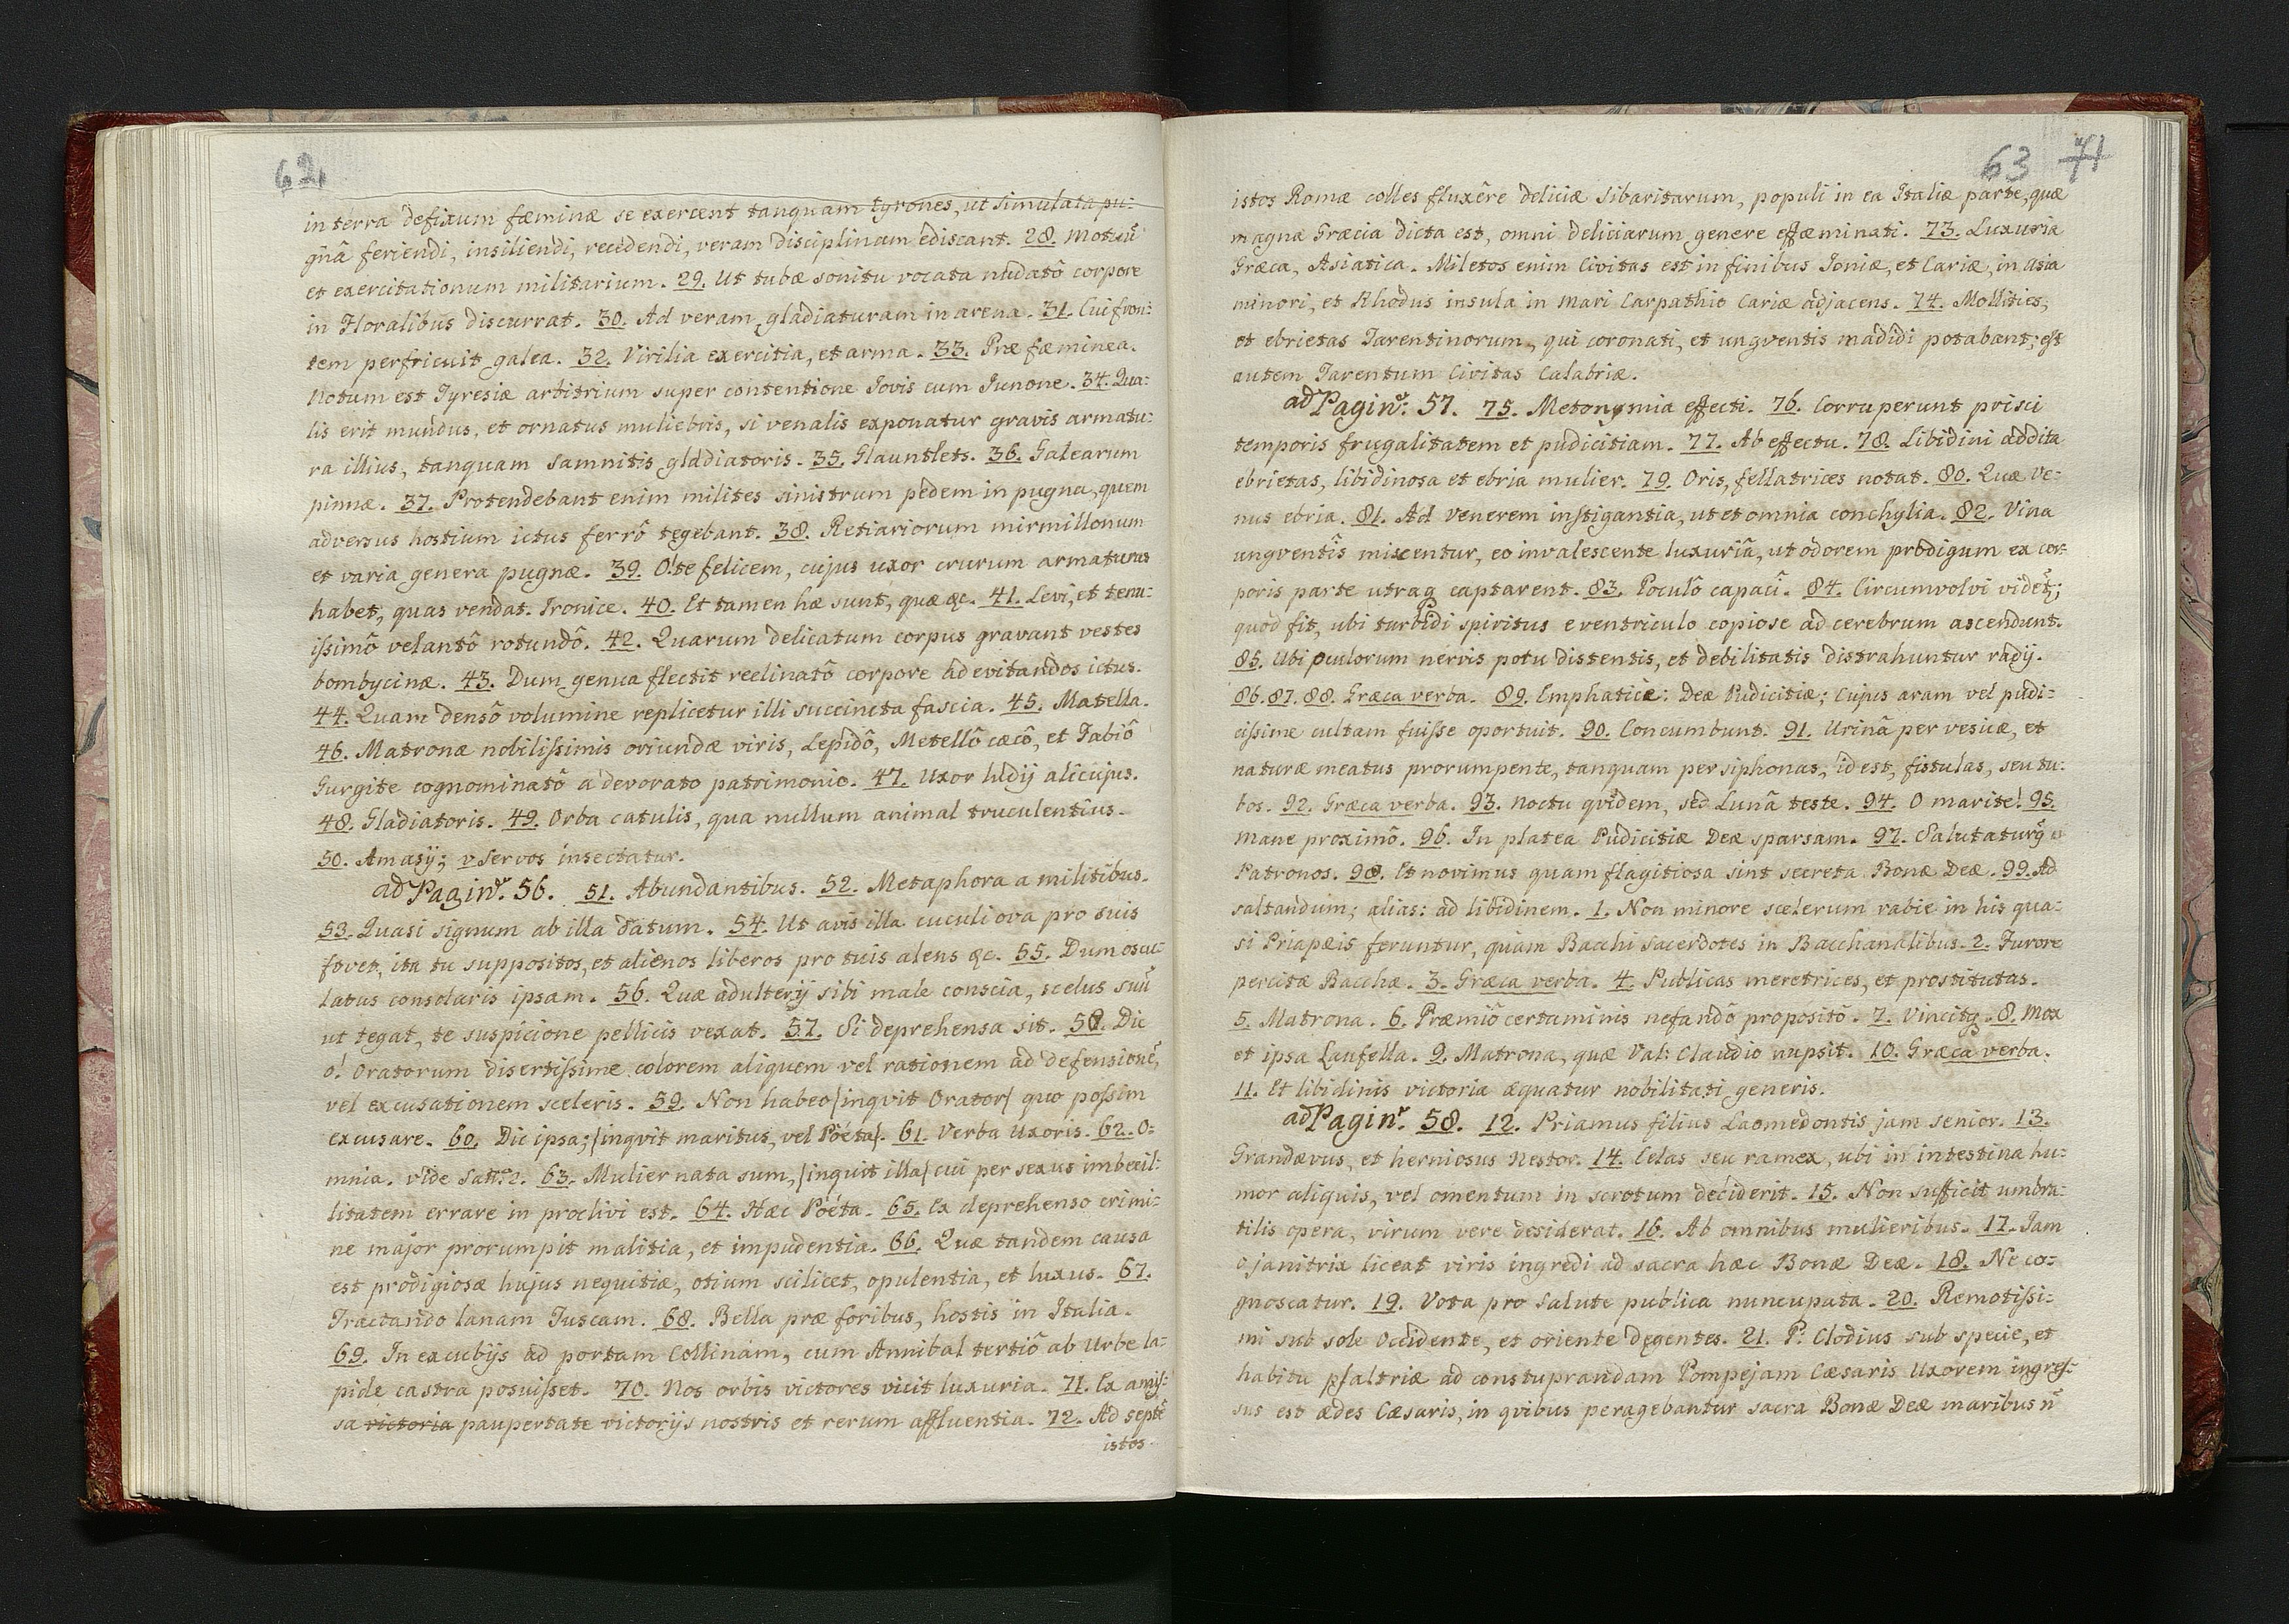 62
in terra defixum fæminæ se exercent tanquam tyrones, ut simulata pu:
gnâ feriendi, insiliendi, recedendi, veram disciplinam ediscant. 28. Motuũ
et exercitationum militarium. 29. Ut tubæ sonitu vocata nudatô corpore
in Floralibus discurrat. 30. Ad veram gladiaturam in arena. 31. Cui fron:
tem perfricuit galea. 32. Virilia exercitia, et arma. 33. Præ fæminea.
Notum est Tyresiæ arbitrium super contentione Jovis cum Junone. 34. Qua:
lis erit mundus, et ornatus muliebris, si venalis exponatur gravis armatu:
ra illius, tanquam Samnitis gladiatoris. 35. Glauntlets. 36. Galearum
pinnæ. 37. Protendebant enim milites sinistrum pedem in pugna, quem
adversus hostium ictus ferrô tegebant. 38. Retiariorum mirmillonum
et varia genera pugnæ. 39. O! te felicem, cujus uxor crurum armaturas
habet, quas vendat. Ironice. 40. Et tamen hæ sunt, quæ &c. 41. Levi, et tenu:
issimô velantô rotundô. 42. Quarum delicatum corpus gravant vestes
bombycinæ. 43. Dum genua flectit reclinatô corpore ad evitandos ictus.
44. Quam densô volumine replicetur illi succincta fascia. 45. Matella.
46. Matronæ nobilissimis oriundæ viris, Lepidô, Metellô cæcô, et Fabiô
Gurgite cognominatô a devorato patrimonio. 47. Uxor ludij alicujus.
48. Gladiatoris. 49. Orba catulis, qua nullum animal truculentius.
50. Amasij; v servos insectatur.
ad Pagin. 56. 51. Abundantibus. 52. Metaphora a militibus.
53. Quasi signum ab illa datum. 54. Ut avis illa cuculi ova pro suis
fovet, ita tu suppositos, et alienos liberos pro tuis alens &c. 55. Dum oscu:
latus consolaris ipsam. 56. Quæ adulterij sibi male conscia, scelus suũ
ut tegat, te suspicione pellicis vexat. 57. Si deprehensa sit. 58. Dic
o! Oratorum disertissime colorem aliquem vel rationem ad defensionẽ,
vel excusationem sceleris. 59. Non habeo /inqvit Orator/ quo possim
excusare. 60. Dic ipsa; /inqvit maritus, vel Poëta/. 61. Verba Uxoris. 62. O:
mnia. vide Sat: 2. 63. Mulier nata sum, /inquit illa/ cui per sexus imbecil:
litatem errare in proclivi est. 64. Hæc Poëta. 65. Ex deprehenso crimi:
ne major prorumpit malitia, et impudentia. 66. Quæ tandem causa
est prodigiosæ hujus nequitiæ, otium scilicet, opulentia, et luxus. 67.
Tractando lanam Tuscam. 68. Bella præ foribus, hostis in Italia.
69. In excubijs ad portam Collinam, cum Annibal tertiô ab Urbe la:
pide castra posuisset. 70. Nos orbis victores vicit luxuria. 71. Ex amis:
sa victoria paupertate victorijs nostris et rerum affluentia. 72. Ad septẽ
istos
63 71
istos Romæ colles fluxêre deliciæ Sibaritarum, populi in ea Italiæ parte, quæ
magna Græcia dicta est, omni deliciarum genere effæminati. 73. Luxuria
Græca, Asiatica. Miletos enim Civitas est in finibus Joniæ, et Cariæ, in Asia
minori, et Rhodus insula in mari Carpathio Cariæ adjacens. 74. Mollities,
et ebrietas Tarentinorum, qui coronati, et ungventis madidi potabant; est
autem Tarentum Civitas Calabriæ.
ad Pagin. 57. 75. Metonymia effecti. 76. Corruperunt prisci
temporis frugalitatem et pudicitiam. 77. Ab effectu. 78. Libidini addita
ebrietas, libidinosa et ebria mulier. 79. Oris, fellatrices notat. 80. Quæ Ve:
nus ebria. 81. Ad Venerem instigantia, ut et omnia conchylia. 82. Vina
ungventis miscentur, eo invalescente luxuriâ, ut odorem prodigum ex cor:
poris parte utraq captarent. 83. Poculô capaci. 84. Circumvolvi videt;
quod fit, ubi turbidi spiritus e ventriculo copiose ad cerebrum ascendunt.
85. Ubi oculorum nervis potu distentis, et debilitatis distrahuntur radij.
86. 87. 88. Græca verba. 89. Emphatice: Deæ Pudicitiæ; Cujus aram vel pudi:
cissime cultam fuisse oportuit. 90. Concumbunt. 91. Urinâ per vesicæ, et
naturæ meatus prorumpente, tanquam per siphonas, id est, fistulas, seu tu:
bos. 92. Græca verba. 93. Noctu qvidem, sed Lunâ teste. 94. O marite! 95.
Mane proximô. 96. In platea Pudicitiæ Deæ sparsam. 97. Salutaturq
Patronos. 98. Et novimus quam flagitiosa sint secreta Bonæ Deæ. 99. Ad
saltandum; alias: ad libidinem. 1. Non minore scelerum rabie in his qua:
si Priapæis feruntur, quam Bacchi sacerdotes in Bacchanalibus. 2. Furore
percitæ Bacchæ. 3. Græca verba. 4. Publicas meretrices, et prostitutas.
5. Matrona. 6. Præmiô certaminis nefandô propositô. 7. Vincitq. 8. Mox
et ipsa Laufella. 9. Matrona, quæ Val: Claudio nupsit. 10. Græca verba.
11. Et libidinis victoria æquatur nobilitati generis.
ad Pagin. 58. 12. Priamus filius Laomedontis jam senior. 13.
Grandævus, et herniosus Nestor. 14. Celas seu ramex, ubi in intestina hu:
mor aliquis, vel omentum in scrotum deciderit. 15. Non sufficit umbra:
tilis opera, virum vere desiderat. 16. Ab omnibus mulieribus. 17. Jam
o janitrix liceat viris ingredi ad sacra hæc Bonæ Deæ. 18. Ne co:
gnoscatur. 19. Vota pro salute publica nuncupata. 20. Remotissi:
mi sub sole Occidente, et oriente degentes. 21. P: Clodius sub specie, et
habitu psaltriæ ad constuprandam Pompejam Cæsaris Uxorem ingres:
sus est ædes Cæsaris, in qvibus peragebantur sacra Bonæ Deæ maribus ñ